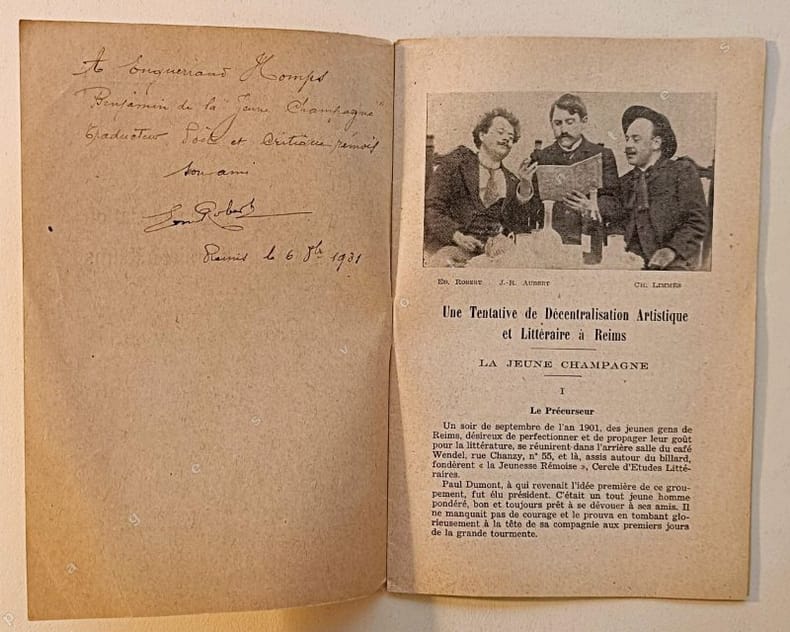 A Enguerrand Homps
Benjamin de la "Jeune Champagne"
Traducteur Poète et Critique rémois
son ami
Ed Robert
Reims le 6 8bre 1931
Ed. Robert J.-R. Aubert Ch. Limmès
Une Tentative de Décentralisation Artistique
et Littéraire à Reims
LA JEUNE CHAMPAGNE
I
Le Précurseur
Un soir de septembre de l'an 1901, des jeunes gens de
Reims, désireux de perfectionner et de propager leur goût
pour la littérature, se réunirent dans l'arrière salle du café
Wendel, rue Chanzy, n° 55, et là, assis autour du billard,
fondèrent « la Jeunesse Rémoise », Cercle d'Etudes Litté-
raires.
Paul Dumont, à qui revenait l'idée première de ce grou-
pement, fut élu président. C'était un tout jeune homme
pondéré, bon et toujours prêt à se dévouer à ses amis. Il
ne manquait pas de courage et le prouva en tombant glo-
rieusement à la tête de sa compagnie aux premiers jours
de la grande tourmente.